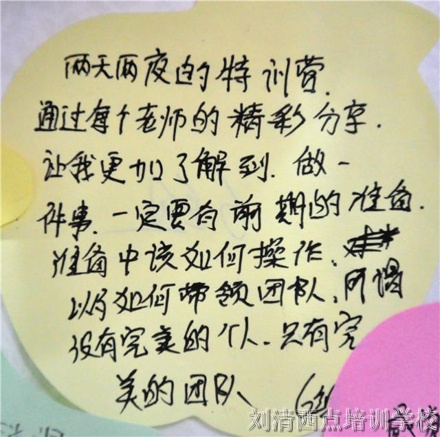 两天两夜的特训营.
通过每个老师的精彩分享.
让我更加了解到.做一
件事.一定要有前期的准备.
准备中该如何操作.
以及如何带领团队.所谓
没有完美的个人.只有完
美的团队
刘清西点培训学校